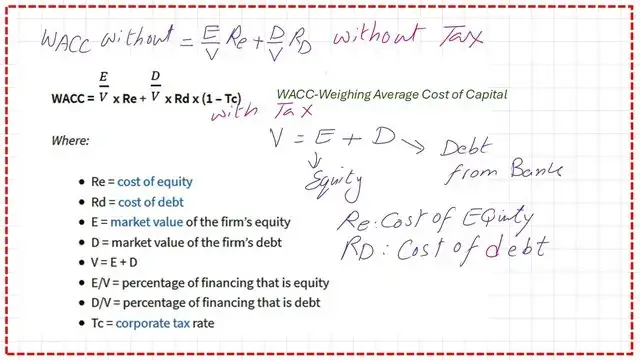 WACC without = E/V Re + D/V RD without Tax
WACC = E/V x Re + D/V x Rd x (1 – Tc)
with Tax
WACC-Weighing Average Cost of Capital
V = E + D → Debt
from Bank
↓
Equity
Re: Cost of EQuity
RD: Cost of debt
Where:
• Re = cost of equity
• Rd = cost of debt
• E = market value of the firm's equity
• D = market value of the firm's debt
• V = E + D
• E/V = percentage of financing that is equity
• D/V = percentage of financing that is debt
• Tc = corporate tax rate